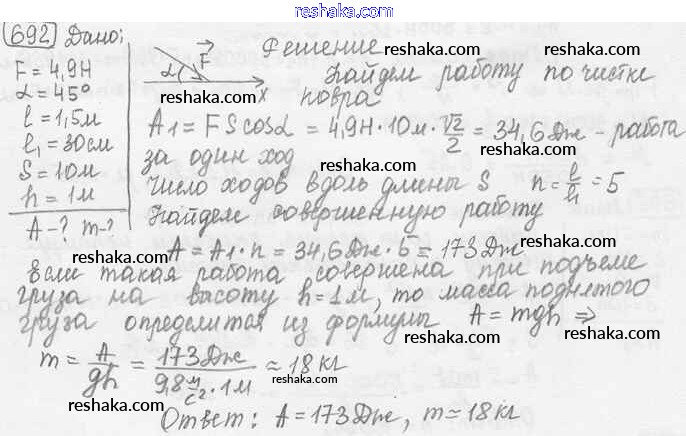 www.reshaka.com
692 Дано:
Решение
F = 4,9Н
α = 45°
l = 1,5м
l₁ = 30см
S = 10м
h = 1м
A - ? m - ?
α F x
reshaka.com
reshaka.com
Найдем работу по чистке
ковра
reshaka.com
A₁ = FS cosα = 4,9Н · 10м · √2/2 = 34,6Дж - работа
за один ход
reshaka.com
reshaka.com
Число ходов вдоль длины S n = l/l₁ = 5
Найдем совершенную работу
reshaka.com
A = A₁ · n = 34,6Дж · 5 = 173Дж
reshaka.com
Если такая работа совершена при подъеме
груза на высоту h = 1м, то масса поднятого
груза определится из формулы A = mgh ⇒
reshaka.com
reshaka.com
m = A/gh = 173Дж/9,8 м/с² · 1м ≃ 18кг
reshaka.com
reshaka.com
reshaka.com
Ответ: A = 173Дж, m ≃ 18кг
www.reshaka.com